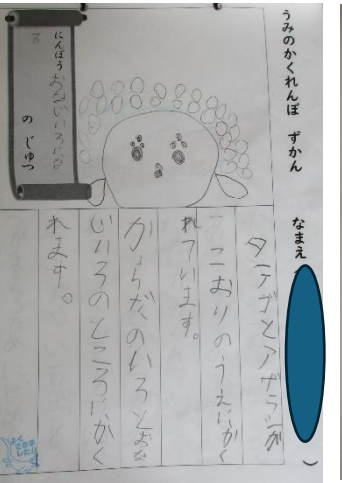 うみのかくれんぼ ずかん なまえ( )
にんぽう おなじいろにな
る
の じゅつ
タテゴとアザラシが
こおりのうえにかく
れています。
からだのいろとおな
じいろのところにかく
れます。